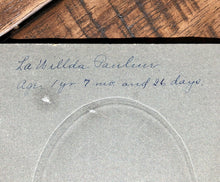 La Willda Pauline
Age 1 yr 7 mo and 26 days.